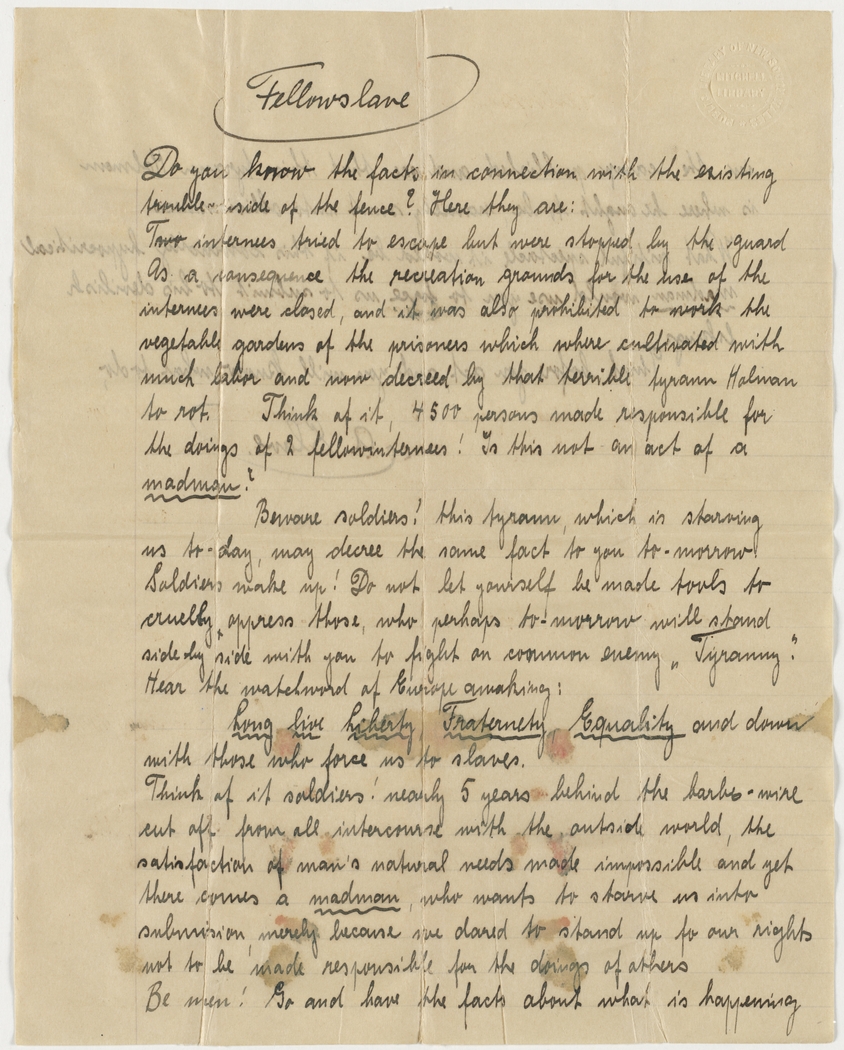 Fellowslave
Do you know the facts in connection with the existing
trouble - side of the fence? Here they are:
Two internees tried to escape but were stopped by the guard
As a consequence the recreation grounds for the use of the
internees were closed, and it was also prohibited to work the
vegetable gardens of the prisoners which where cultivated with
much labor and now decreed by that terrible tyrann Holman
to rot. Think of it, 4500 persons made responsible for
the doings of 2 fellowinternees! Is this not an act of a
madman?
Beware soldiers! this tyrann, which is starving
us to-day, may decree the same fact to you to-morrow.
Soldiers wake up! Do not let yourself be made tools to
cruelly oppress those, who perhaps to-morrow will stand
side by side with you to fight on common enemy „Tyranny."
Hear the watchword of Europe awaking:
Long live Liberty, Fraternety, Equality and down
with those who force us to slaves.
Think of it soldiers! nearly 5 years behind the barbe-wire
cut off from all intercourse with the outside world, the
satisfaction of man's natural needs made impossible and yet
there comes a madman, who wants to starve us into
submission, merely because we dared to stand up fo our rights
not to be made responsible for the doings of others
Be men! Go and have the facts about what is happening